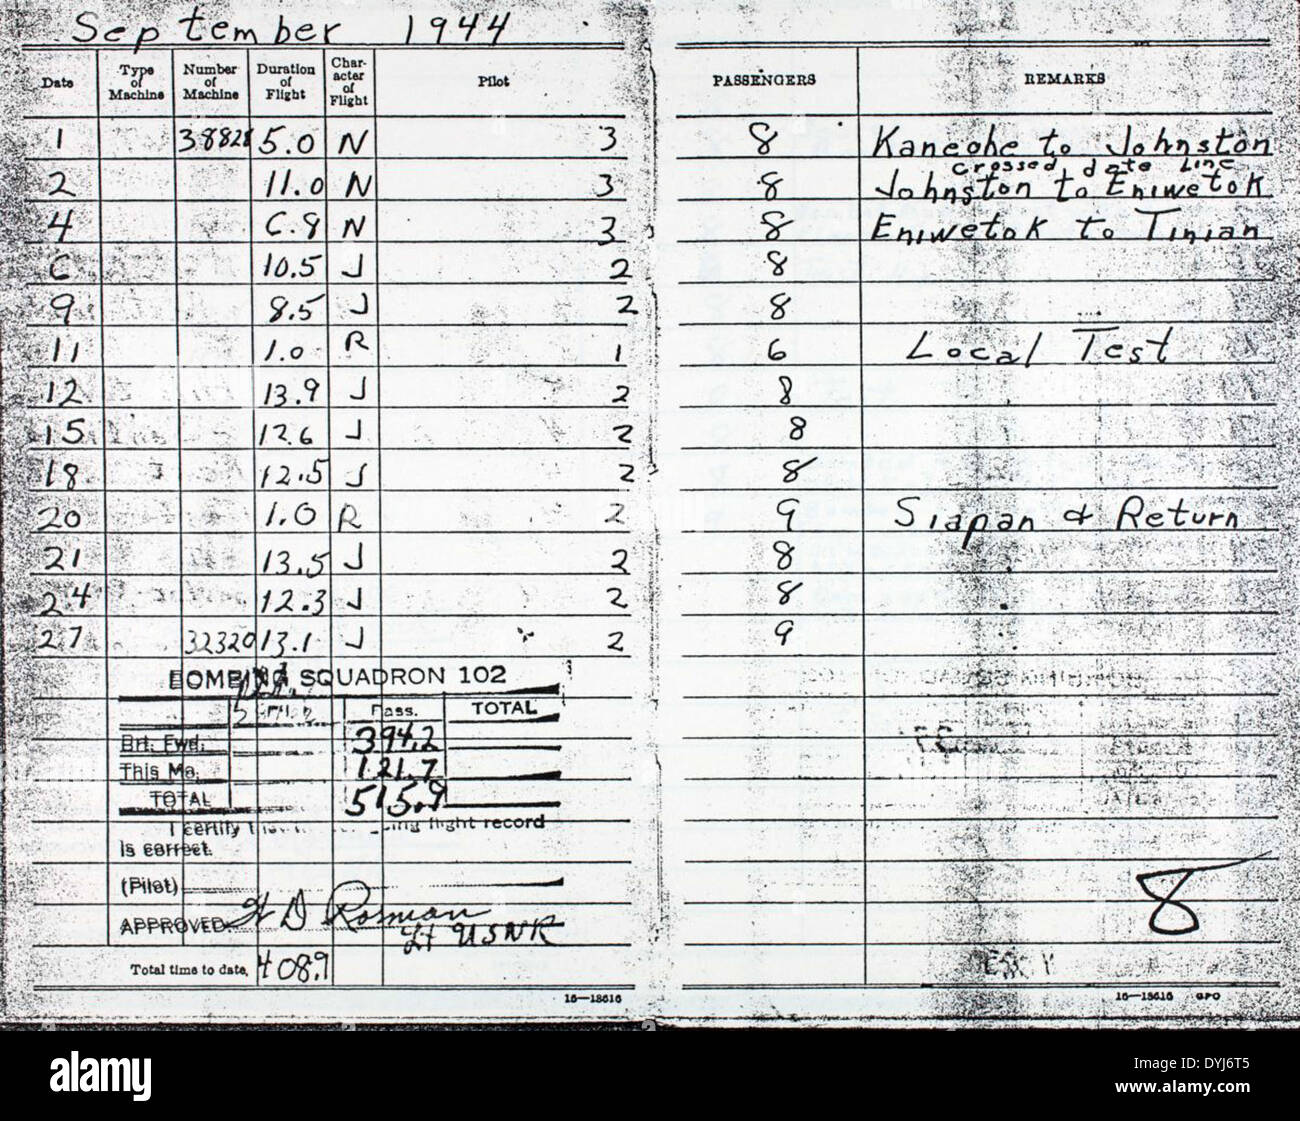 September 1944
Date Type of Machine Number of Machine Duration of Flight Character of Flight Pilot PASSENGERS REMARKS
1 38828 5.0 N 3 8 Kaneohe to Johnston
crossed date line
2 11.0 N 3 8 Johnston to Eniwetok
4 6.9 N 3 8 Eniwetok to Tinian
6 10.5 J 2 8
9 8.5 J 2 8
11 1.0 R 1 6 Local Test
12 13.9 J 2 8
15 12.6 J 2 8
18 12.5 J 2 8
20 1.0 R 2 9 Siapan & Return
21 13.5 J 2 8
24 12.3 J 2 8
27 32320 13.1 J 2 9
BOMBING SQUADRON 102
Pass. TOTAL
Brt. Fwd. 394.2
This Mo. 121.7
TOTAL 515.9
I certify flight record
is correct.
(Pilot)
APPROVED H D Rosman
Lt USNR
8
Total time to date, 408.9
16—13616
16—13616 GPO
alamy
Image ID: DYJ6T5
www.alamy.com